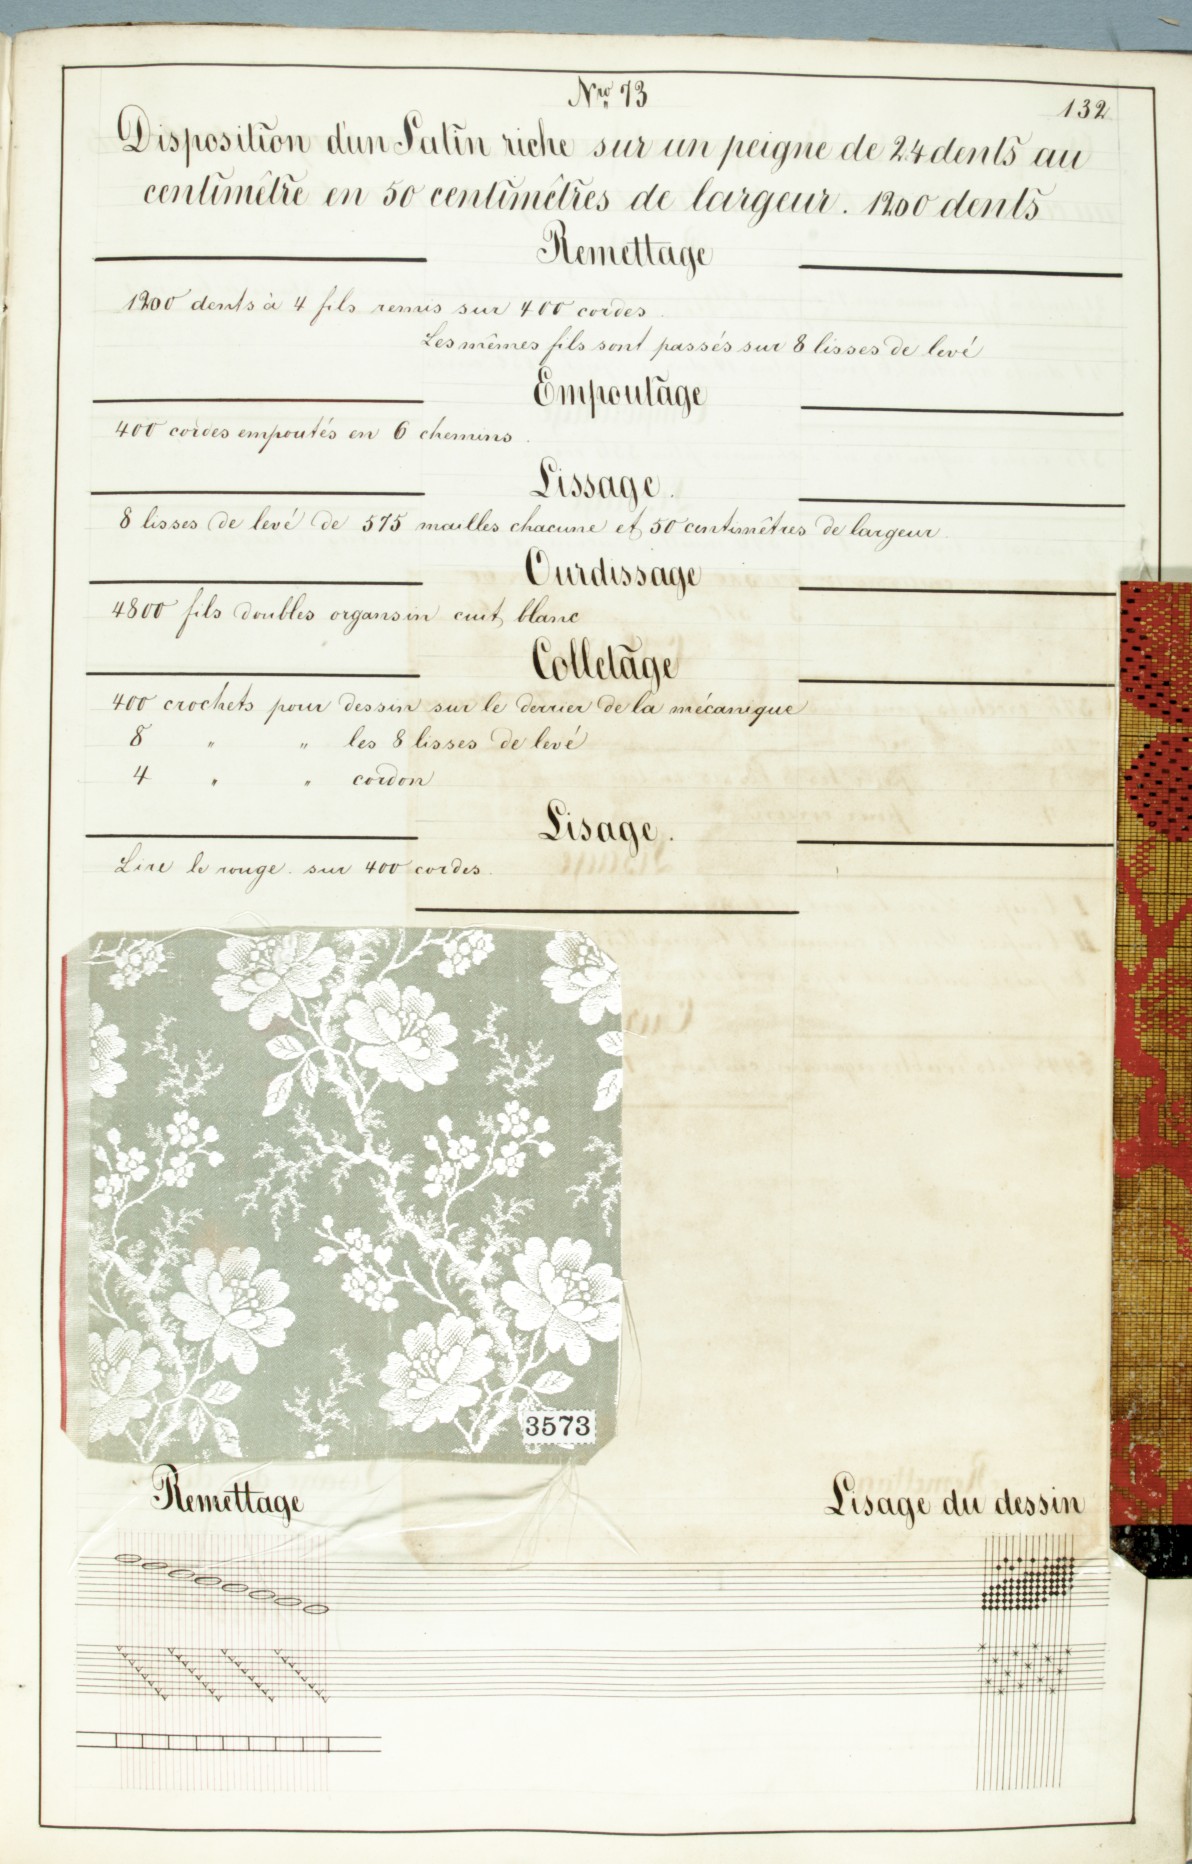 Nro 73
132
Disposition d'un Satin riche sur un peigne de 24 dents au
centimêtre en 50 centimêtres de largeur. 1200 dents
Remettage
1200 dents à 4 fils remis sur 400 cordes.
Les mêmes fils sont passés sur 8 lisses de levé
Empoutage
400 cordes empoutés en 6 chemins.
Lissage.
8 lisses de levé de 575 mailles chacune et 50 centimêtres de largeur.
Ourdissage
4800 fils doubles organsin cuit, blanc
Colletage
400 crochets pour dessin sur le derrier de la mécanique
8 " " les 8 lisses de levé
4 " " cordon
Lisage.
Lire le rouge sur 400 cordes.
3573
Remettage
Lisage du dessin